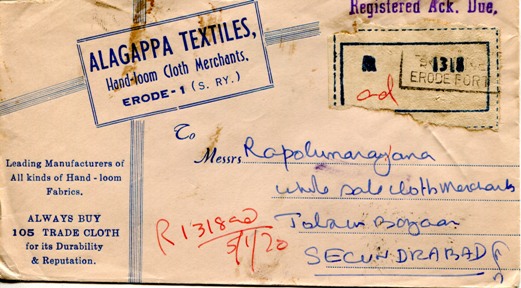 Registered Ack. Due,
ALAGAPPA TEXTILES,
Hand-loom Cloth Merchants,
ERODE-1 (S. RY.)
R 1318
ERODE FORT
ad
To
Messrs Rapolunarayana
whole sale cloth Merchants
SECUNDRABAD
Leading Manufacturers of
All kinds of Hand-loom
Fabrics.
ALWAYS BUY
105 TRADE CLOTH
for its Durability
& Reputation.
R 1318 ad
5/1/70